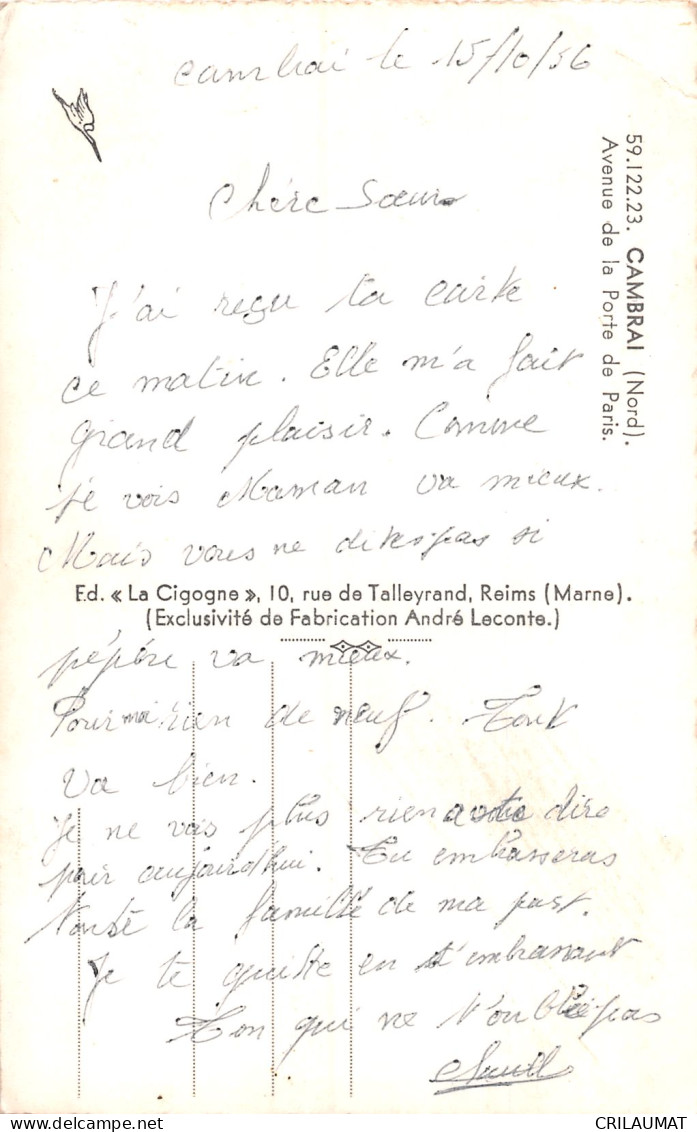 Cambrai le 15/10/56
59.122.23. CAMBRAI (Nord).
Avenue de la Porte de Paris.
Chère Sœur
J'ai reçu ta carte
ce matin. Elle m'a fait
grand plaisir. Comme
je vois Maman va mieux.
Mais vous ne dites pas si
Ed. « La Cigogne », 10, rue de Talleyrand, Reims (Marne).
(Exclusivité de Fabrication André Leconte.)
pépère va mieux.
Pour moi rien de neuf. Tout
va bien.
Je ne vois plus rien a te dire
pour aujourd'hui. Tu embrasseras
toute la famille de ma part.
Je te quitte en t'embrassant
Ton qui ne t'oublie pas
CRILAUMAT